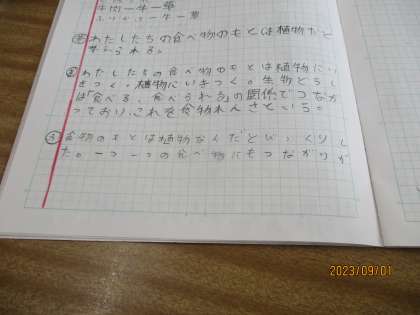 牛肉ー牛ー草
ー牛ー草
予 わたしたちの食べ物のもとは植物だと
考えられる。
ま わたしたちの食べ物のもとは植物にい
きつく。植物にいきつく。生物どうし
は「食べる、食べられる」の関係でつなが
っており、これを食物れんさという。
食物のもとは植物なんだとびっくりし
た。一つ一つの食べ物にもつながりが
2023/09/01